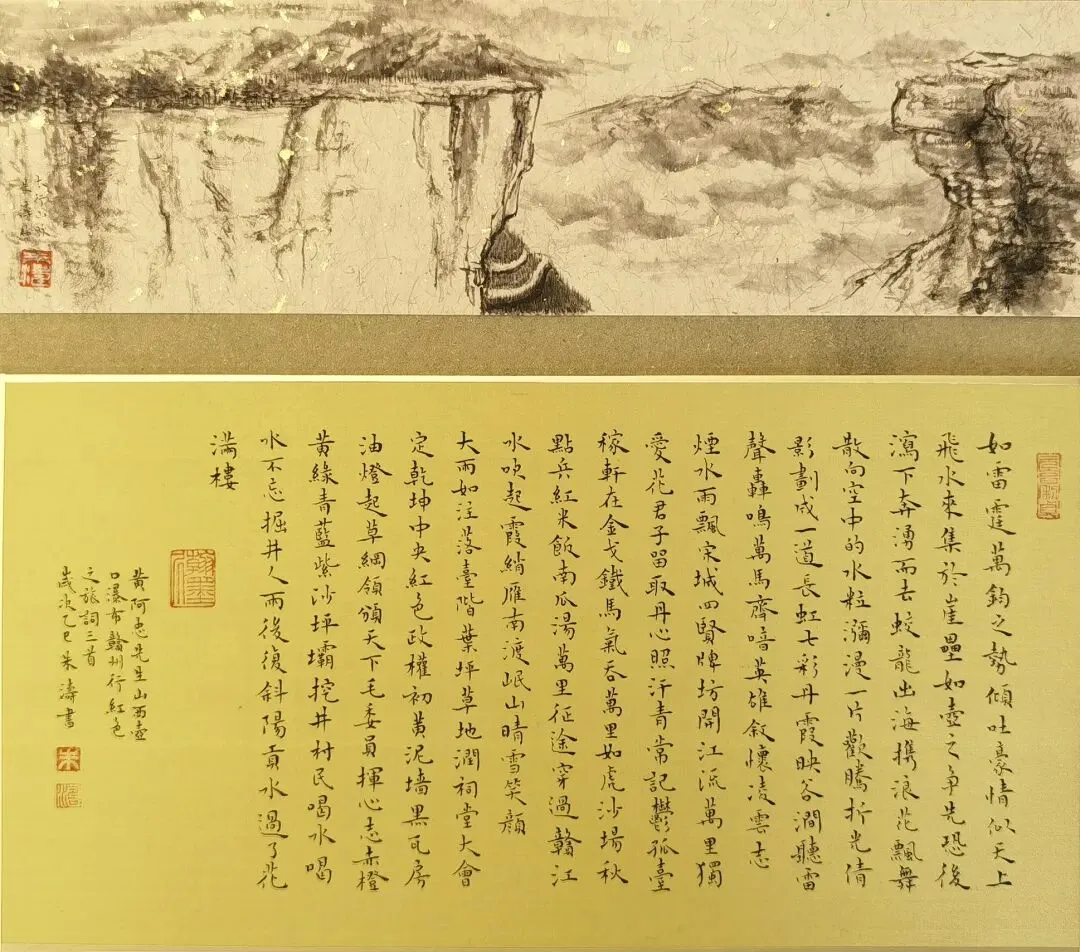 如雷霆萬鈞之勢傾吐豪情似天上
飛水來集於崖壘如壺之爭先恐後
瀉下奔湧而去蛟龍出海携浪花飄舞
散向空中的水粒瀰漫一片歡騰折光倩
影劃成一道長虹七彩丹霞映谷澗聽雷
聲轟鳴萬馬齊喑英雄敘懷凌雲志
煙水雨飄宋城四賢牌坊開江流萬里獨
愛花君子留取丹心照汗青常記鬱孤臺
稼軒在金戈鐵馬氣吞萬里如虎沙場秋
點兵紅米飯南瓜湯萬里征途穿過贛江
水吹起霞綃雁南渡岷山晴雪笑顏
大雨如注落臺階葉坪草地潤祠堂大會
定乾坤中央紅色政權初黃泥墙黑瓦房
油燈起草綱領頒天下毛委員揮心志赤橙
黃綠青藍紫沙坪壩挖井村民喝水喝
水不忘掘井人雨後復斜陽貢水過了花
滿樓
黃阿忠先生山西壺
口瀑布贛州行紅色
之旅詞三首
歲次乙巳朱濤書
朱